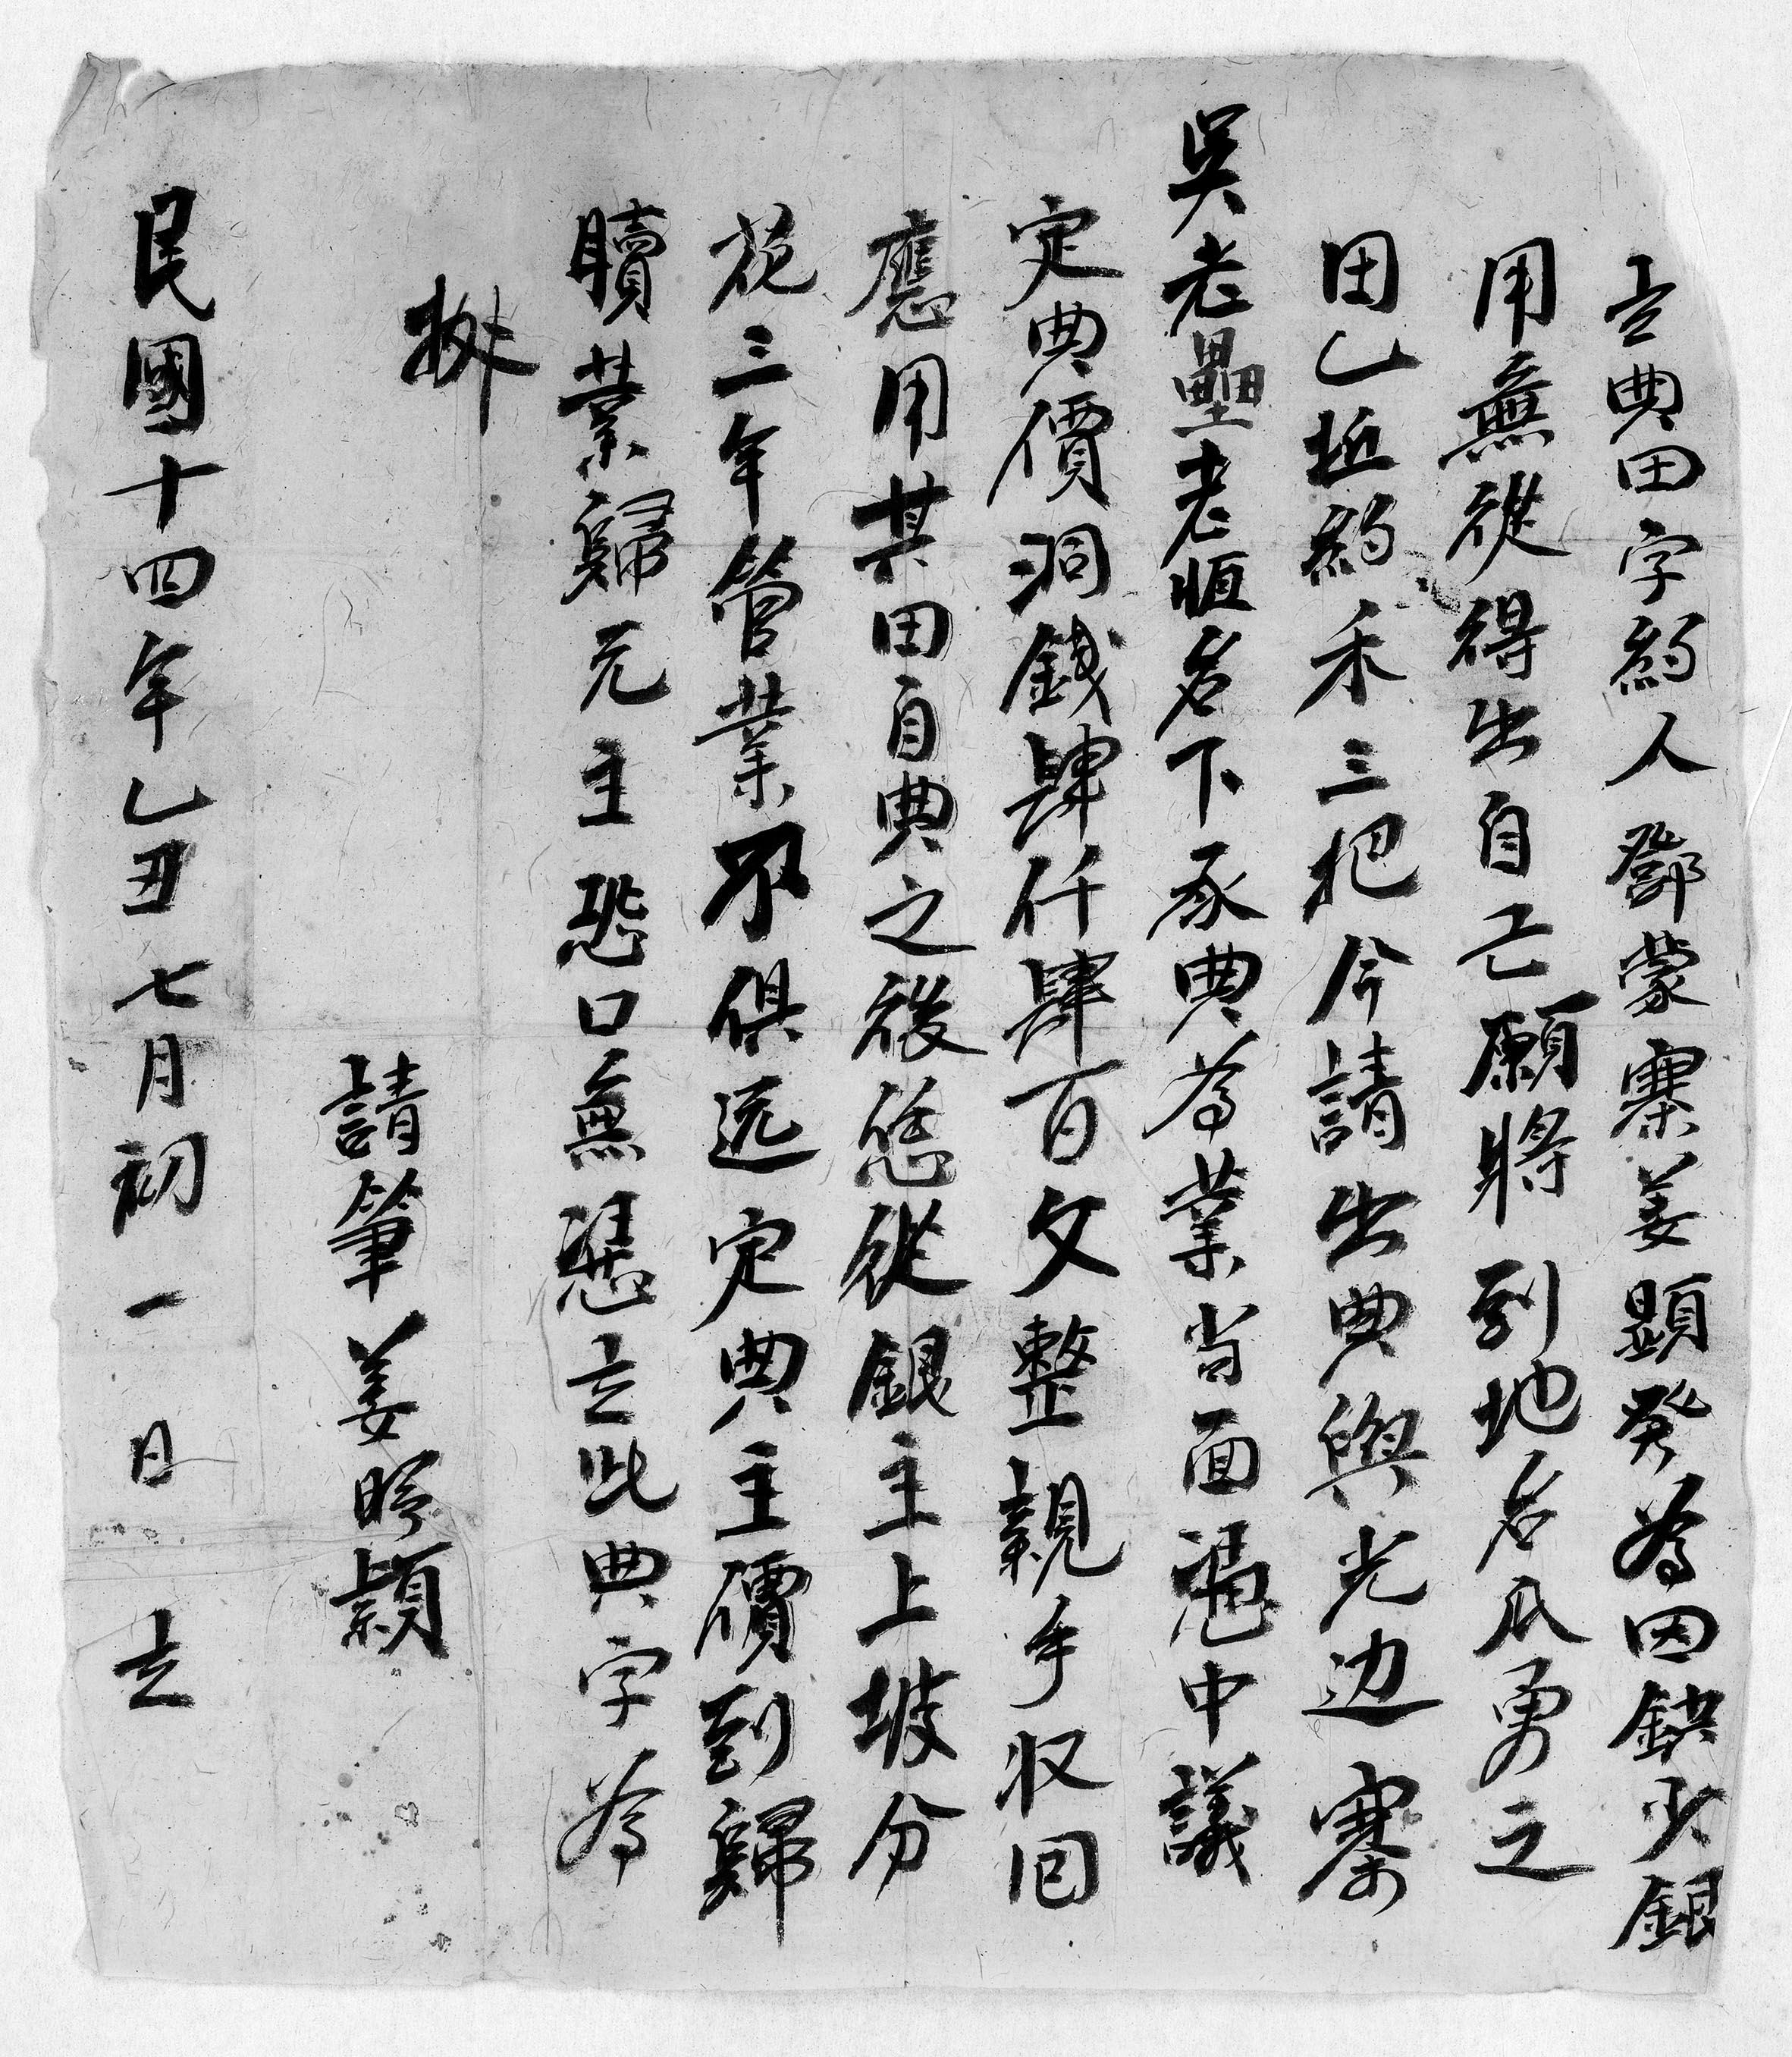 立典田字約人鄧蒙寨姜顕癸為因缺少銀
用無從得出自己願將到地名瓜勇之
田乙坵約禾三把今請出典與光边寨
吳老壘老恒名下承典為業当面憑中議
定典價洞錢肆仟肆百文整親手収囘
應用其田自典之後恁從銀主上坡分
花三年管業不俱远定典主價到歸
贖業歸元主恐口無憑立此典字為
拠
請筆姜盼穎
民國十四年乙丑七月初一日立